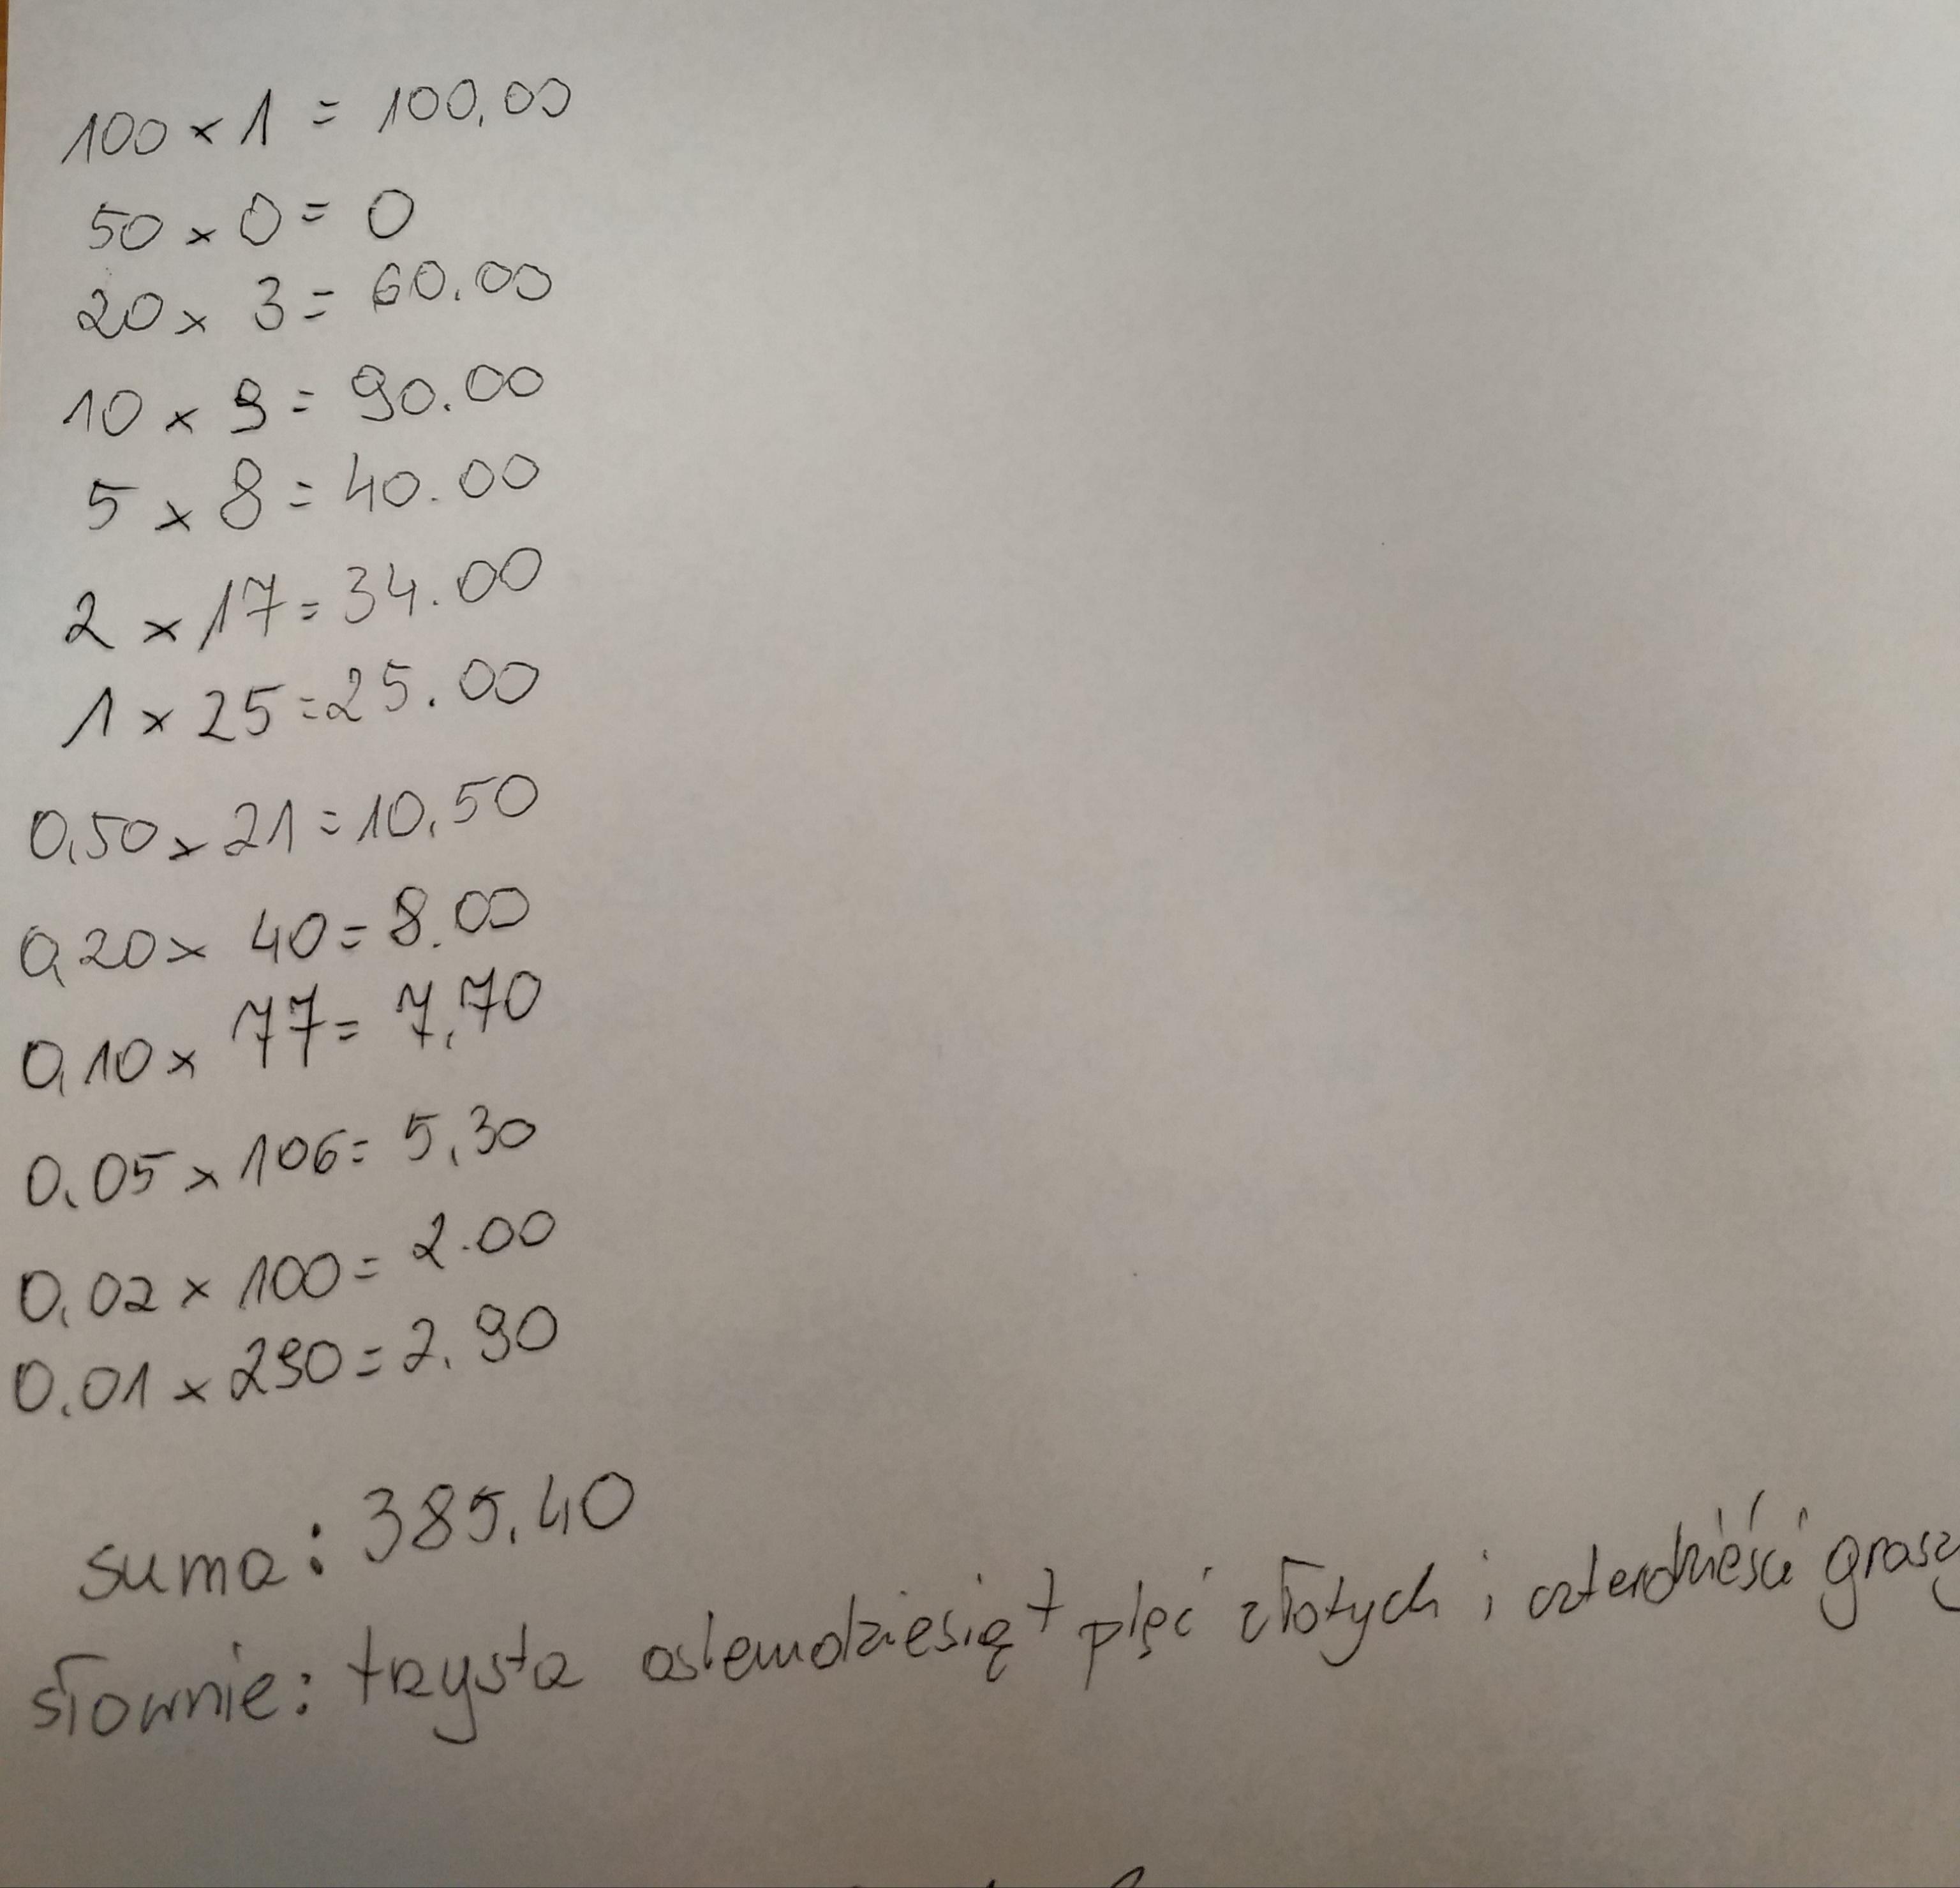 100 x 1 = 100,00
50 x 0 = 0
20 x 3 = 60.00
10 x 9 = 90.00
5 x 8 = 40.00
2 x 17 = 34.00
1 x 25 = 25.00
0,50 x 21 = 10,50
0,20 x 40 = 8.00
0,10 x 77 = 7,70
0,05 x 106 = 5,30
0,02 x 100 = 2.00
0,01 x 290 = 2,90
suma: 385,40
słownie: trzysta osiemdziesiąt pięć złotych i czterdzieści grosz